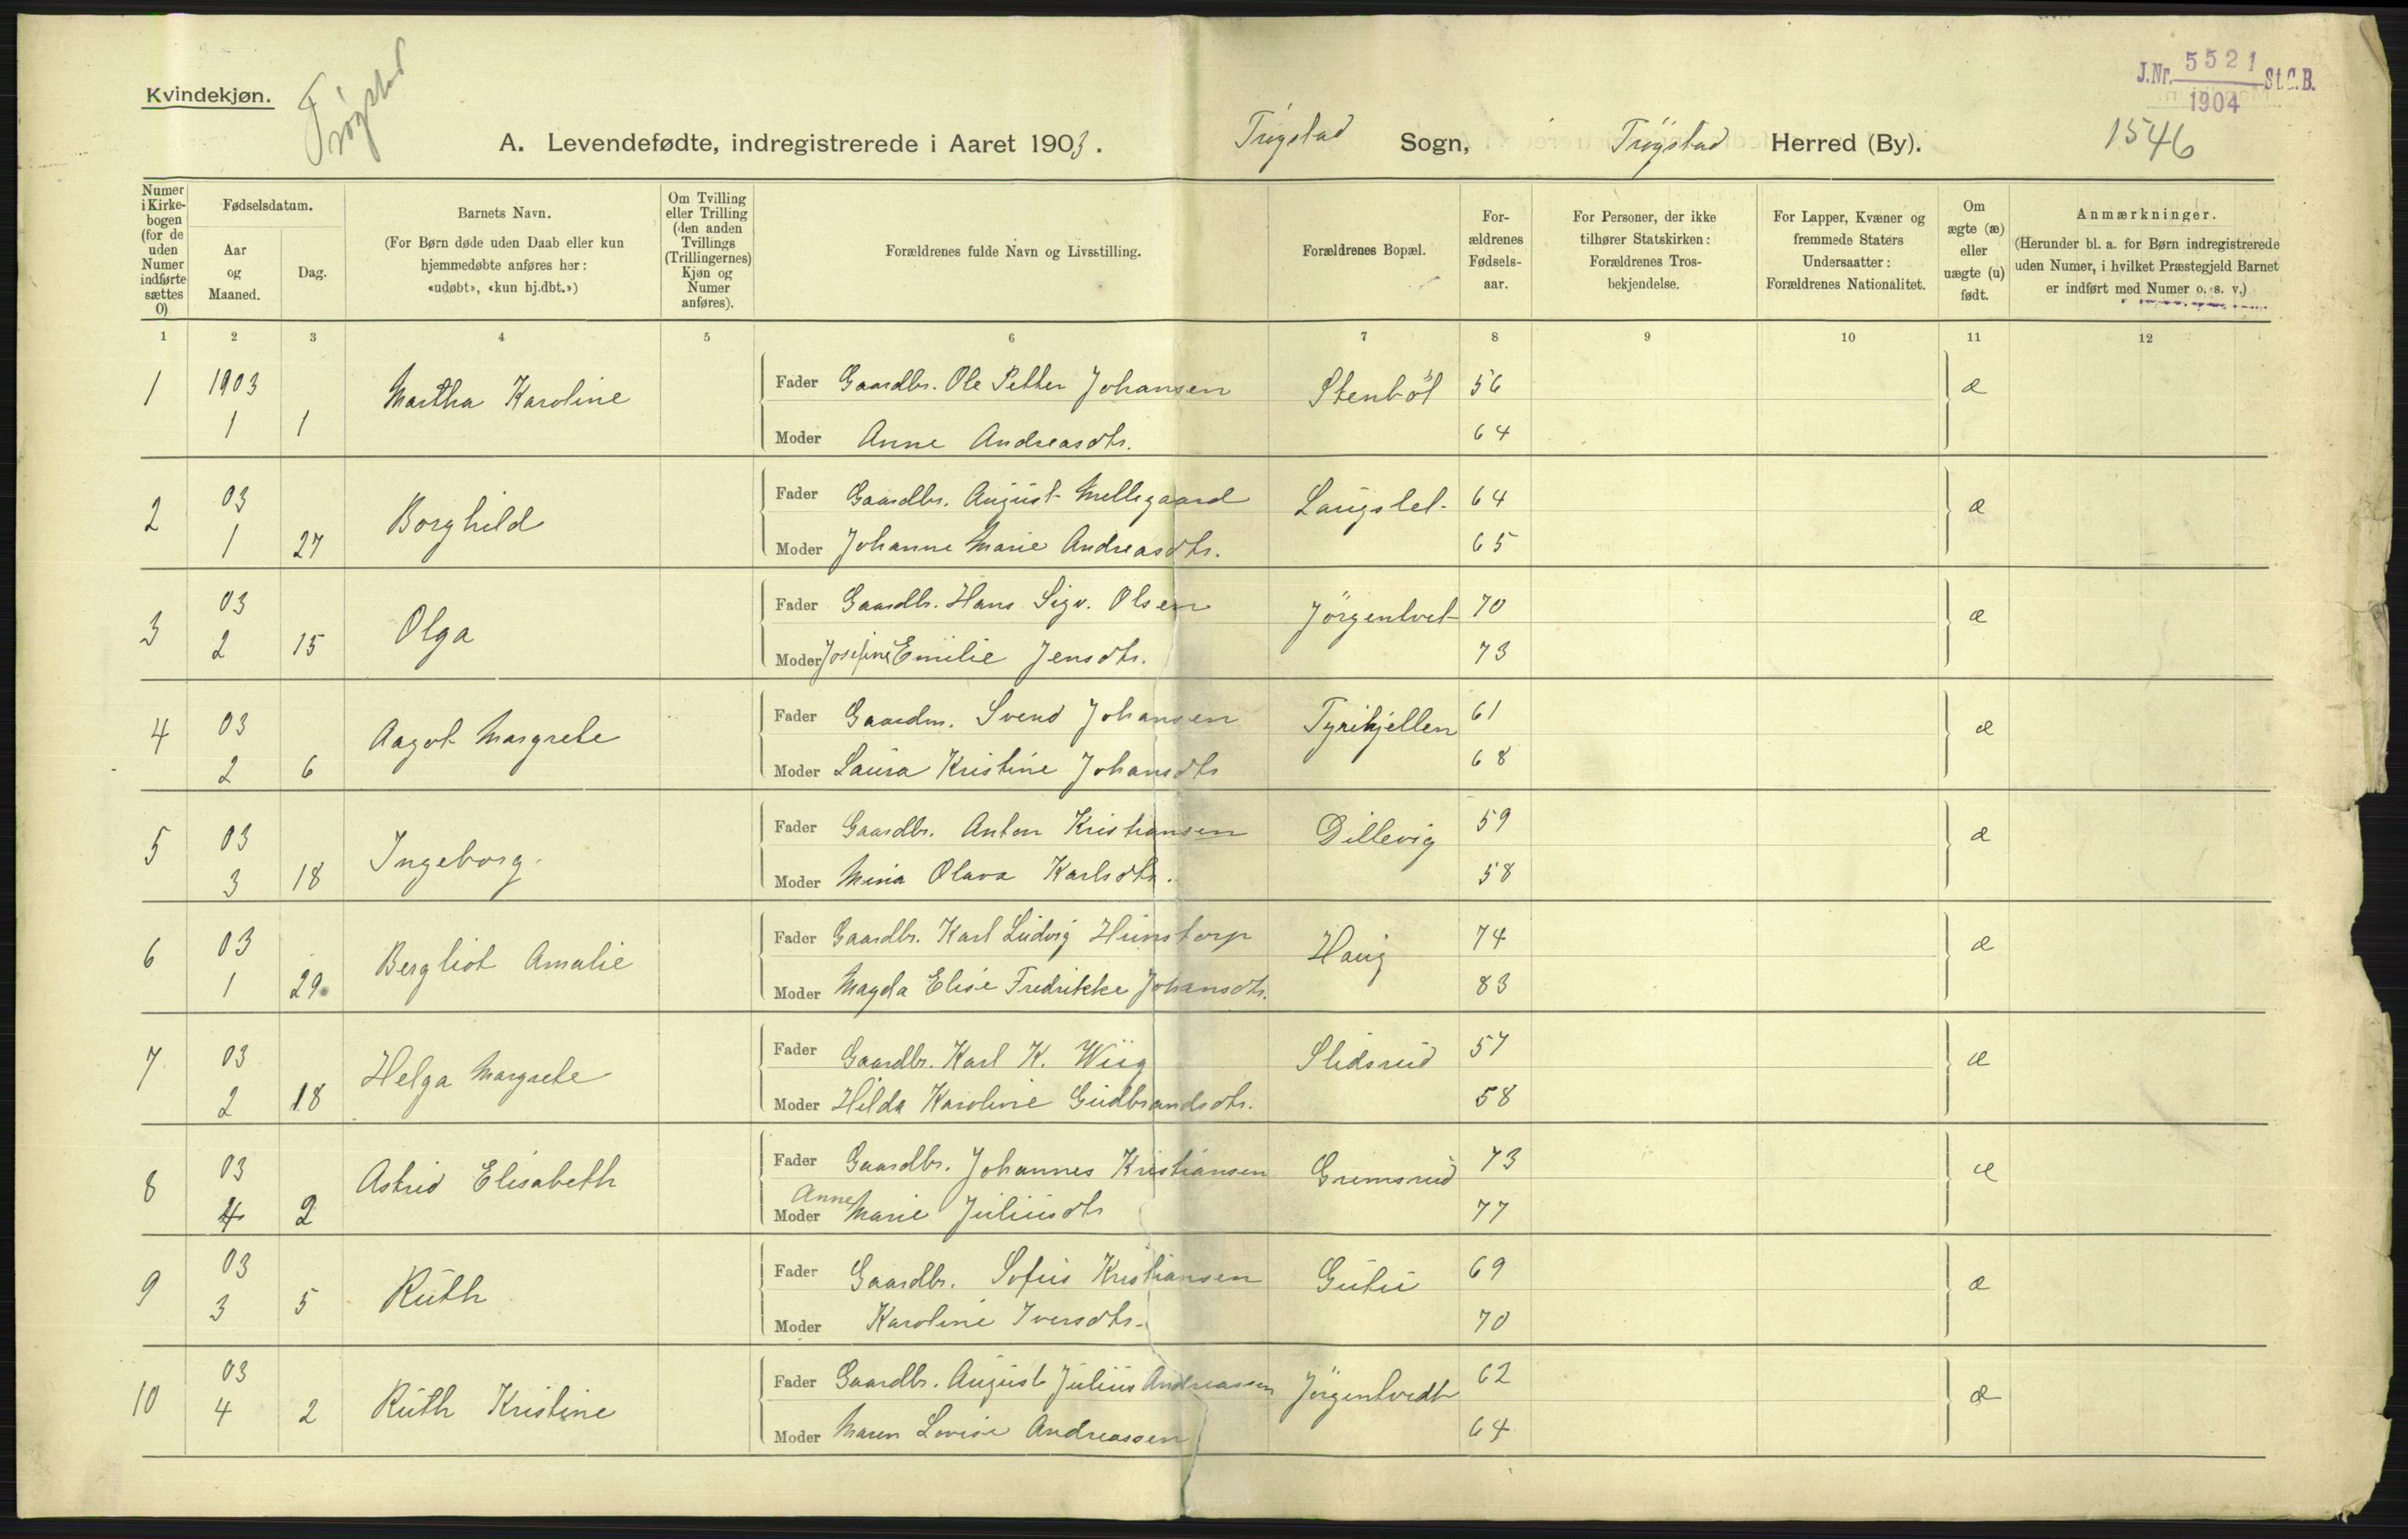 Kvindekjøn.
Trøgstad
J.Nr. 5521 St.C.B.
1904
1546
A. Levendefødte, indregistrerede i Aaret 1903. Trøgstad Sogn, Trøgstad Herred (By).
Numer i Kirkebogen (for de uden Numer indførte sættes 0)
Fødselsdatum.
Aar og Maaned.
Dag.
Barnets Navn.
(For Børn døde uden Daab eller kun hjemmedøbte anføres her: «udøbt», «kun hj.dbt.»)
Om Tvilling eller Trilling (den anden Tvillings (Trillingernes) Kjøn og Numer anføres).
Forældrenes fulde Navn og Livsstilling.
Forældrenes Bopæl.
Forældrenes Fødselsaar.
For Personer, der ikke tilhører Statskirken: Forældrenes Trosbekjendelse.
For Lapper, Kvæner og fremmede Staters Undersaatter: Forældrenes Nationalitet.
Om ægte (æ) eller uægte (u) født.
Anmærkninger.
(Herunder bl. a. for Børn indregistrerede uden Numer, i hvilket Præstegjeld Barnet er indført med Numer o. s. v.)
1 2 3 4 5 6 7 8 9 10 11 12
1 1903 Martha Karoline Fader Gaardbr. Ole Petter Johansen Stenböl 56 æ
1 1 Moder Anne Andreasdtr. 64
2 03 Borghild Fader Gaardbr. August Mellegaard Langslet 64 æ
1 27 Moder Johanne Marie Andreasdtr. 65
3 03 Olga Fader Gaardbr. Hans Sigv. Olsen Jörgentvet 70 æ
2 15 Moder Josefine Emilie Jensdtr. 73
4 03 Aagot Margrete Fader Gaardm. Svend Johansen Tyrihjellen 61 æ
2 6 Moder Laura Kristine Johansdtr 68
5 03 Ingeborg. Fader Gaardbr. Anton Kristiansen Dillevig 59 æ
3 18 Moder Mina Olava Karlsdtr. 58
6 03 Bergliot Amalie Fader Gaardbr. Karl Ludvig Hunstorp Haug 74 æ
1 29 Moder Magda Elise Fredrikke Johansdtr. 83
7 03 Helga Margrete Fader Gaardbr. Karl K. Wiig Slidsrud 57 æ
2 18 Moder Hilda Karoline Gudbrandsdtr. 58
8 03 Astrid Elisabeth Fader Gaardbr. Johannes Kristiansen Grimsrud 73 æ
4 2 Moder Anne Marie Juliusdtr 77
9 03 Ruth Fader Gaardbr. Sofus Kristiansen Gutu 69 æ
3 5 Moder Karoline Iversdtr. 70
10 03 Ruth Kristine Fader Gaardbr. August Julius Andreassen Jörgentvedt 62 æ
4 2 Moder Maren Lovise Andreassen 64